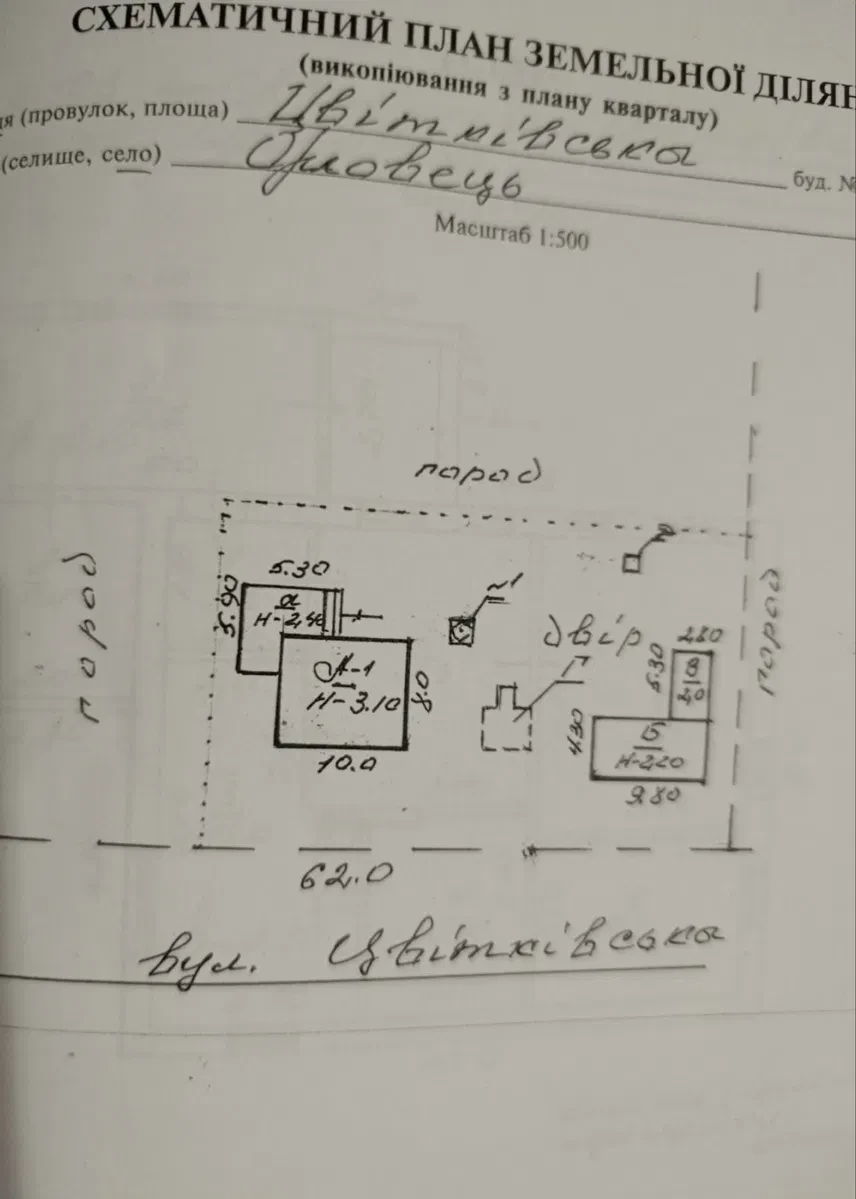 СХЕМАТИЧНИЙ ПЛАН ЗЕМЕЛЬНОЇ ДІЛЯН
(викопіювання з плану кварталу)
ця (провулок, площа) Цвітківська
(селище, село) Орловець буд. №
Масштаб 1:500
город
город
город
5.30
5.90
а
Н-2,40
А-1
Н-3.10
8.0
10.0
№1
2
двір
Г
2.80
5.30
В
2,0
4.30
Б
Н-2,20
9.80
62.0
вул. Цвітківська